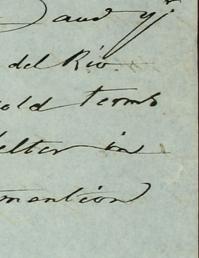 and yr
del Rio.
old terms
letter in
mention